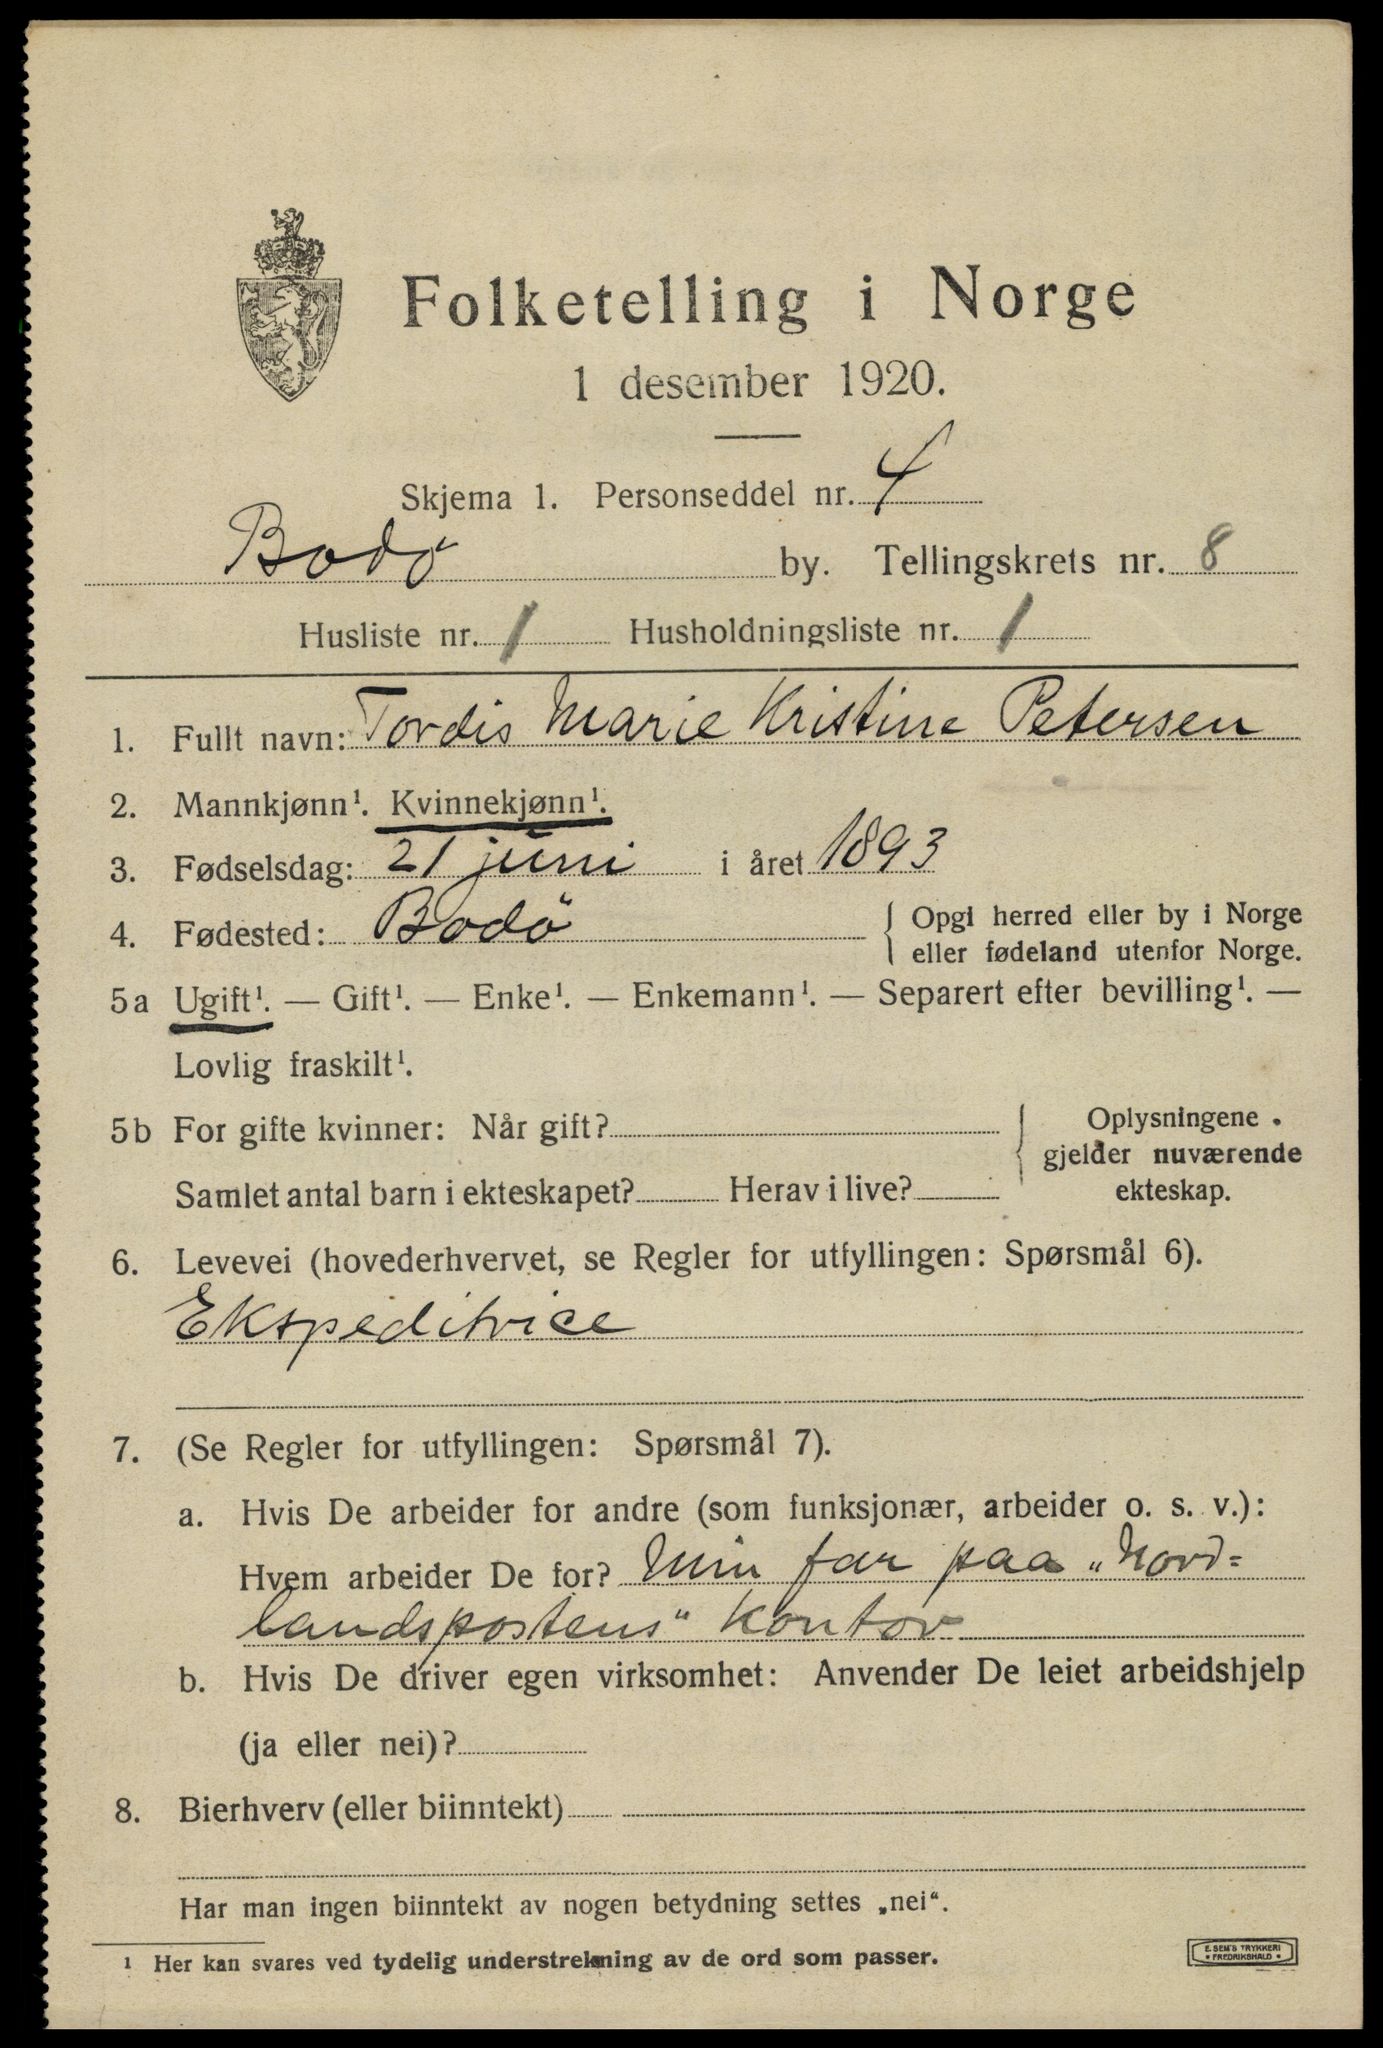 Folketelling i Norge
1 desember 1920.
Skjema 1. Personseddel nr. 4
Bodö by. Tellingskrets nr. 8
Husliste nr. 1 Husholdningsliste nr. 1
1. Fullt navn: Tordis Marie Kristine Petersen
2. Mannkjønn¹. Kvinnekjønn¹.
3. Fødselsdag: 21 juni i året 1893
4. Fødested: Bodö
{ Opgi herred eller by i Norge
eller fødeland utenfor Norge.
5a Ugift¹. — Gift¹. — Enke¹. — Enkemann¹. — Separert efter bevilling¹. —
Lovlig fraskilt¹.
5b For gifte kvinner: Når gift?
Samlet antal barn i ekteskapet? Herav i live?
{ Oplysningene
gjelder nuværende
ekteskap.
6. Levevei (hovederhvervet, se Regler for utfyllingen: Spørsmål 6).
Ekspeditrice
7. (Se Regler for utfyllingen: Spørsmål 7).
a. Hvis De arbeider for andre (som funksjonær, arbeider o. s. v.):
Hvem arbeider De for? Min far paa „Nord=
landspostens" kontor
b. Hvis De driver egen virksomhet: Anvender De leiet arbeidshjelp
(ja eller nei)?
8. Bierhverv (eller biinntekt)
Har man ingen biinntekt av nogen betydning settes „nei".
¹ Her kan svares ved tydelig understrekning av de ord som passer.
E. SEM'S TRYKKERI
• FREDRIKSHALD •